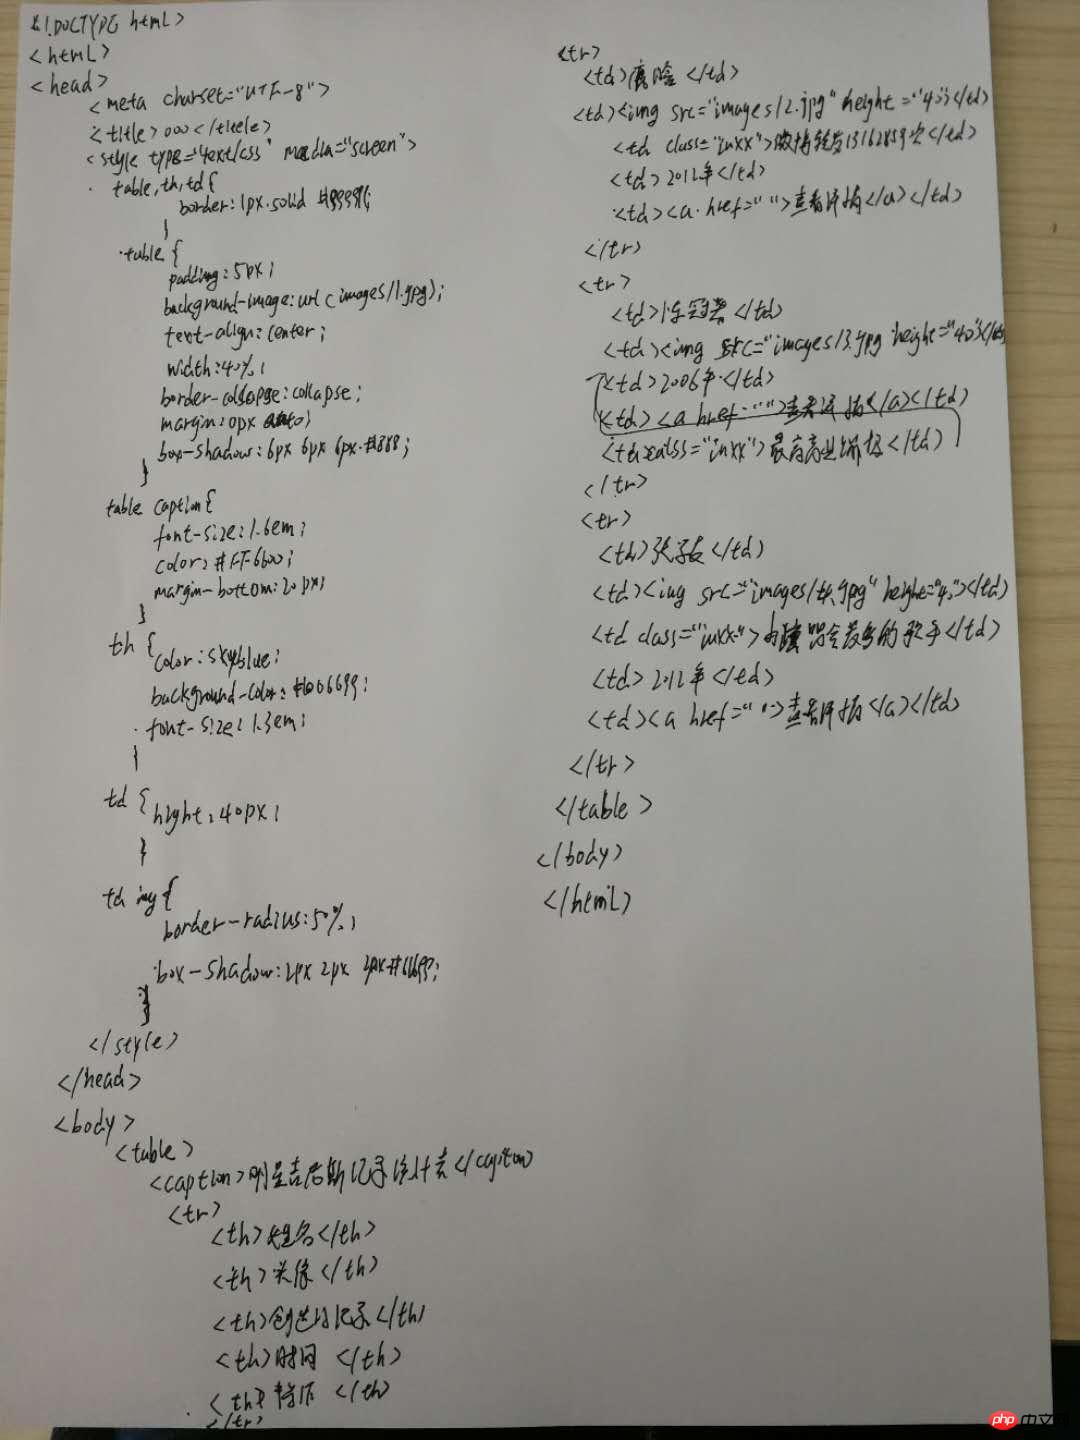 <!DOCTYPE html>
<html>
<head>
<meta charset="UTF-8">
<title>000</title>
<style type="text/css" media="screen">
table,th,td{
border:1px solid #99999;
}
table {
padding:5px;
background-image:url(images/1.jpg);
text-align:center;
width:40%;
border-collapse:collapse;
margin:0px auto;
box-shadow:6px 6px 6px #888;
}
table caption{
font-size:1.6em;
color:#FF6600;
margin-bottom:20px;
}
th {
color:skyblue;
background-color:#006699;
font-size:1.3em;
}
td {
hight:40px;
}
td img{
border-radius:50%;
box-shadow:2px 2px 2px
}
</style>
</head>
<body>
<table>
<caption>明星吉尼斯记录统计表</caption>
<tr>
<th>姓名</th>
<th>头像</th>
<th>创造的记录</th>
<th>时间</th>
<th> </th>
</tr>
<tr>
<td>唐晗</td>
<td><img src="images/2.jpg" height="40"></td>
<td class="inxx">微博转发13162859次</td>
<td>2012年</td>
<td><a href=" ">查看详情</a></td>
</tr>
<tr>
<td>陈冠希</td>
<td><img src="images/3.jpg height="40"></td>
<td>2006年</td>
<td><a href="">查看详情</a></td>
<td calss="inxx">最高商业价格</td>
</tr>
<tr>
<th>张学友</td>
<td><img src="images/ height="40"></td>
<td class="inxx"> 的歌手</td>
<td>2012年</td>
<td><a href=" ">查看详情</a></td>
</tr>
</table>
</body>
</html>
php 中文网